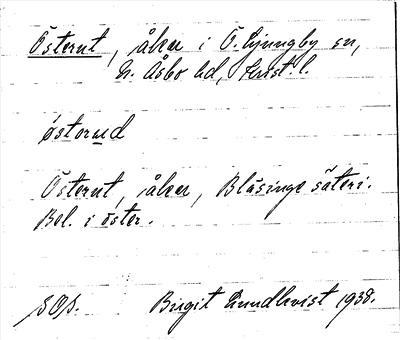 Österut, åker i Ö. Ljungby sn,
N. Åsbo hd, Krist. l.
östorud
Österut, åker, Blåsinge säteri.
Bel. i öster.
SOA. Birgit Lundkvist 1938.